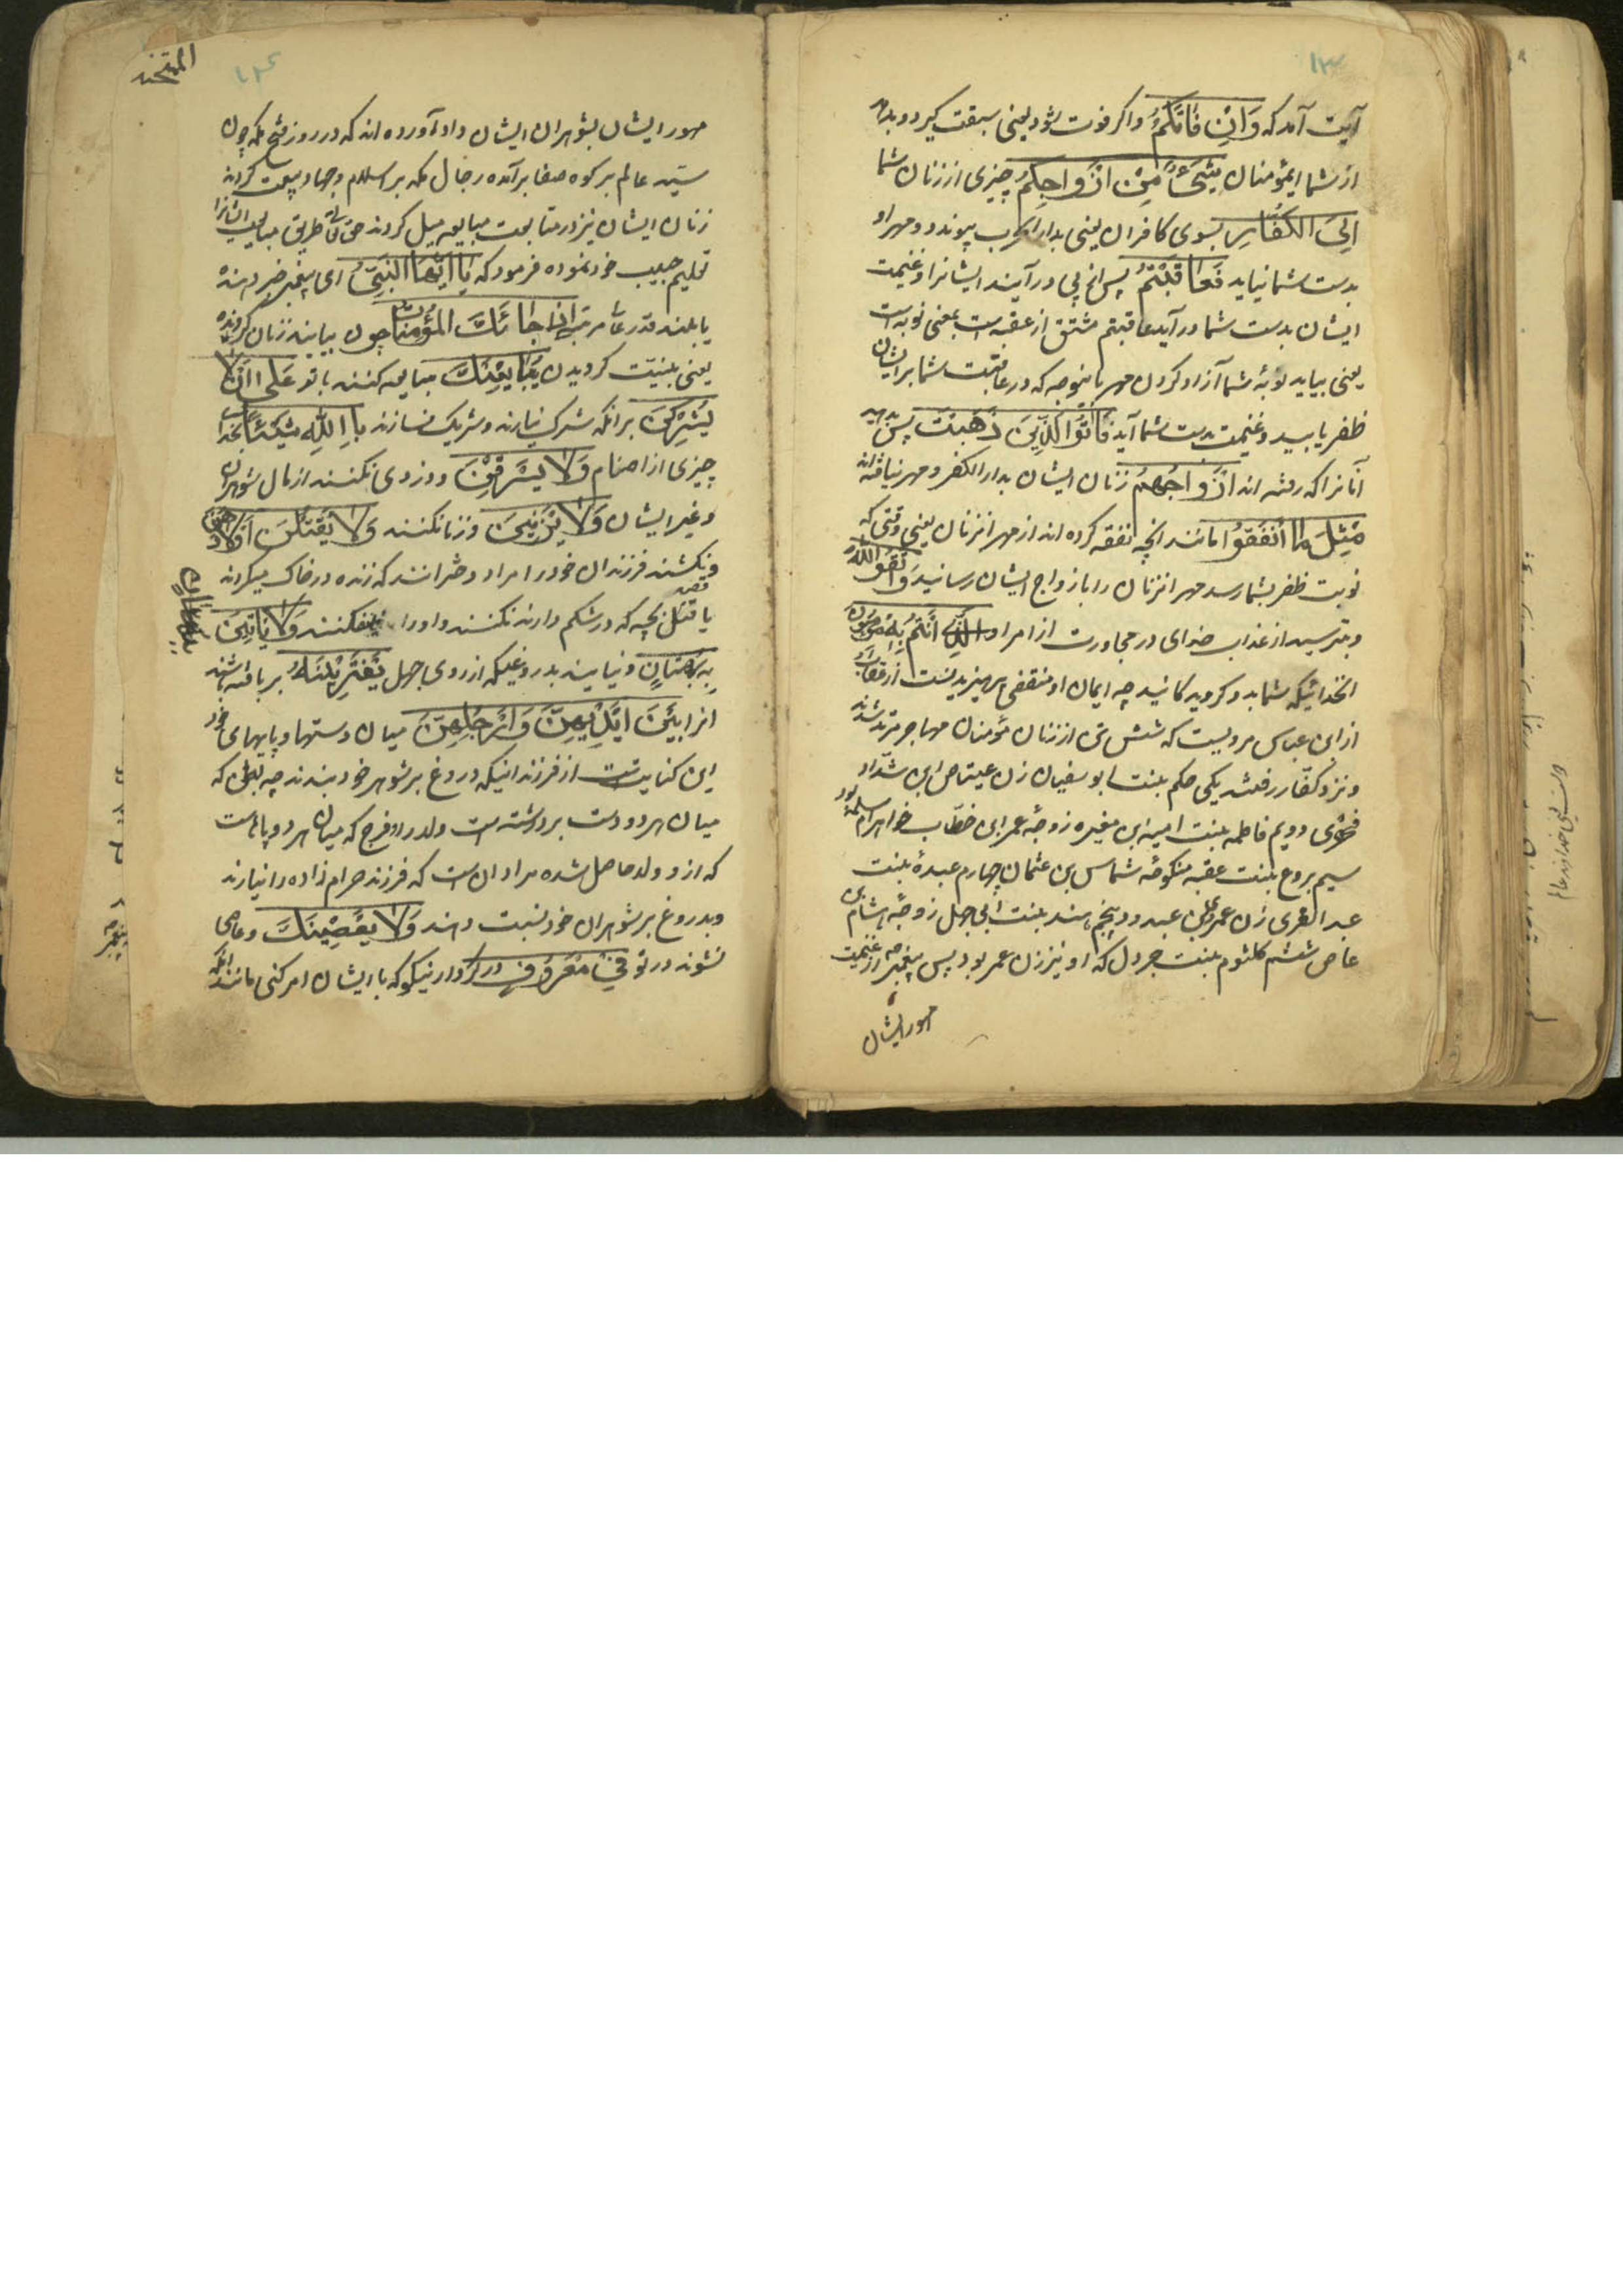 ۱۳
آیت آمد که وَاِنْ فَاتَكُمْ واگر فوت شود یعنی سبقت گیرد و بدود
از شما ایمؤمنان شَیْءٌ مِنْ اَزْوَاجِكُمْ چیزی از زنان شما
اِلَی الْكُفَّارِ بسوی کافران یعنی بدار الحرب پیوندد و مهر او
بدست شما نیاید فَعَاقَبْتُمْ پس از پی درآیید ایشانرا و غنیمت
ایشان بدست شما درآید عاقبتم مشتق از عقبه است بمعنی نوبه است
یعنی بیاید نوبهٔ شما آزاد کردن مهر باینوجه که در عاقبت شما بر ایشان
ظفر یابید و غنیمت بدست شما آید فَاٰتُوا الَّذِیْنَ ذَهَبَتْ پس بدهید
آنانرا که رفته اند اَزْوَاجُهُمْ زنان ایشان بدار الکفر و مهر نیافته اند
مِثْلَ مَا اَنْفَقُوا مانند انچه نفقه کرده اند از مهر انزنان یعنی وقتی که
نوبت ظفر بشما رسد مهر انزنان را بازواج ایشان رسانید وَاتَّقُوا اللّٰهَ
و بترسید از عذاب خدای در مجاورت از امر او الَّذِی اَنْتُمْ بِهِ مُؤْمِنُونَ
انخدائیکه شما بدو گرویدگانید چه ایمان او منقضی پرهیزیدنست از
از ابن عباس مرویست که شش تن از زنان مؤمنان مهاجر مرتد شدند
و نزد کفّار رفتند یکی حکم بنت ابو سفیان زن عیتاض ابن شدّاد
فهری دویم فاطمه بنت امیه ابن مغیره زوجهٔ عمر ابن خطّاب خواهر ام سلمه بود
سیم بروع بنت عقبه منکوحهٔ شماس بن عثمان چهارم عبدهٔ بنت
عبد العزی زن عمرو بن عبدود پنجم هند بنت ابی جهل زوجهٔ هشام بن
عاص ششم کلثوم بنت جرول که او نیز زن عمر بود پس پیغمبر ص از غنیمت
مهور ایشان
۱۴
الممتحنه
مهور ایشان بشوهران ایشان داد آورده اند که در روز فتح مکه چون
سیّد عالم بر کوه صفا برآمده رجال مکه بر اسلام و جهاد بیعت کردند
زنان ایشان نیز در متابعت مبایعه میل کردند حق تعالی طریق مبایعه ایشانرا
تعلیم حبیب خود نموده فرمود که یَا اَیُّهَا النَّبِیُّ ای پیغمبر خبر دهنده
یا بلند قدر عالی مرتبه اِذَا جَائَكَ الْمُؤْمِنَاتُ چون بیایند زنان گرونده
یعنی بنیّت گرویدن یُبَایِعْنَكَ مبایعه کنند با تو عَلٰی اَنْ لَا
یُشْرِكْنَ برانکه شرک نیارند و شریک نسازند بِاللّٰهِ شَیْئًا بخدا
چیزی از اصنام وَلَا یَسْرِقْنَ و دزدی نکنند از مال شوهران
و غیر ایشان وَلَا یَزْنِیْنَ و زنا نکنند وَلَا یَقْتُلْنَ اَوْلَادَهُنَّ
و نکشند فرزندان خود را مراد دختر انند که زنده در خاک میکردند
یا قصد قتل بچه که در شکم دارند نکنند و او را نیفکنند وَلَا یَأتِیْنَ
بِبُهْتَانٍ و نیایند بدروغیکه از روی جهل یَفْتَرِیْنَهُ بربافته باشند
انرا بَیْنَ اَیْدِیْهِنَّ وَاَرْجُلِهِنَّ میان دستها و پایهای خود
این کنایتست از فرزندانیکه دروغ بر شوهر خود بندند چه بطن که
میان هر دو دست برداشته است ولد را و فرج که میان هر دو پا است
که از و ولد حاصل شده مراد ان است که فرزند حرام زاده را نیارند
و بدروغ بر شوهران خود نسبت دهند وَلَا یَعْصِیْنَكَ و عاصی
نشوند در تو فِی مَعْرُوفٍ در کردار نیکو که با ایشان امر کنی مانند انکه